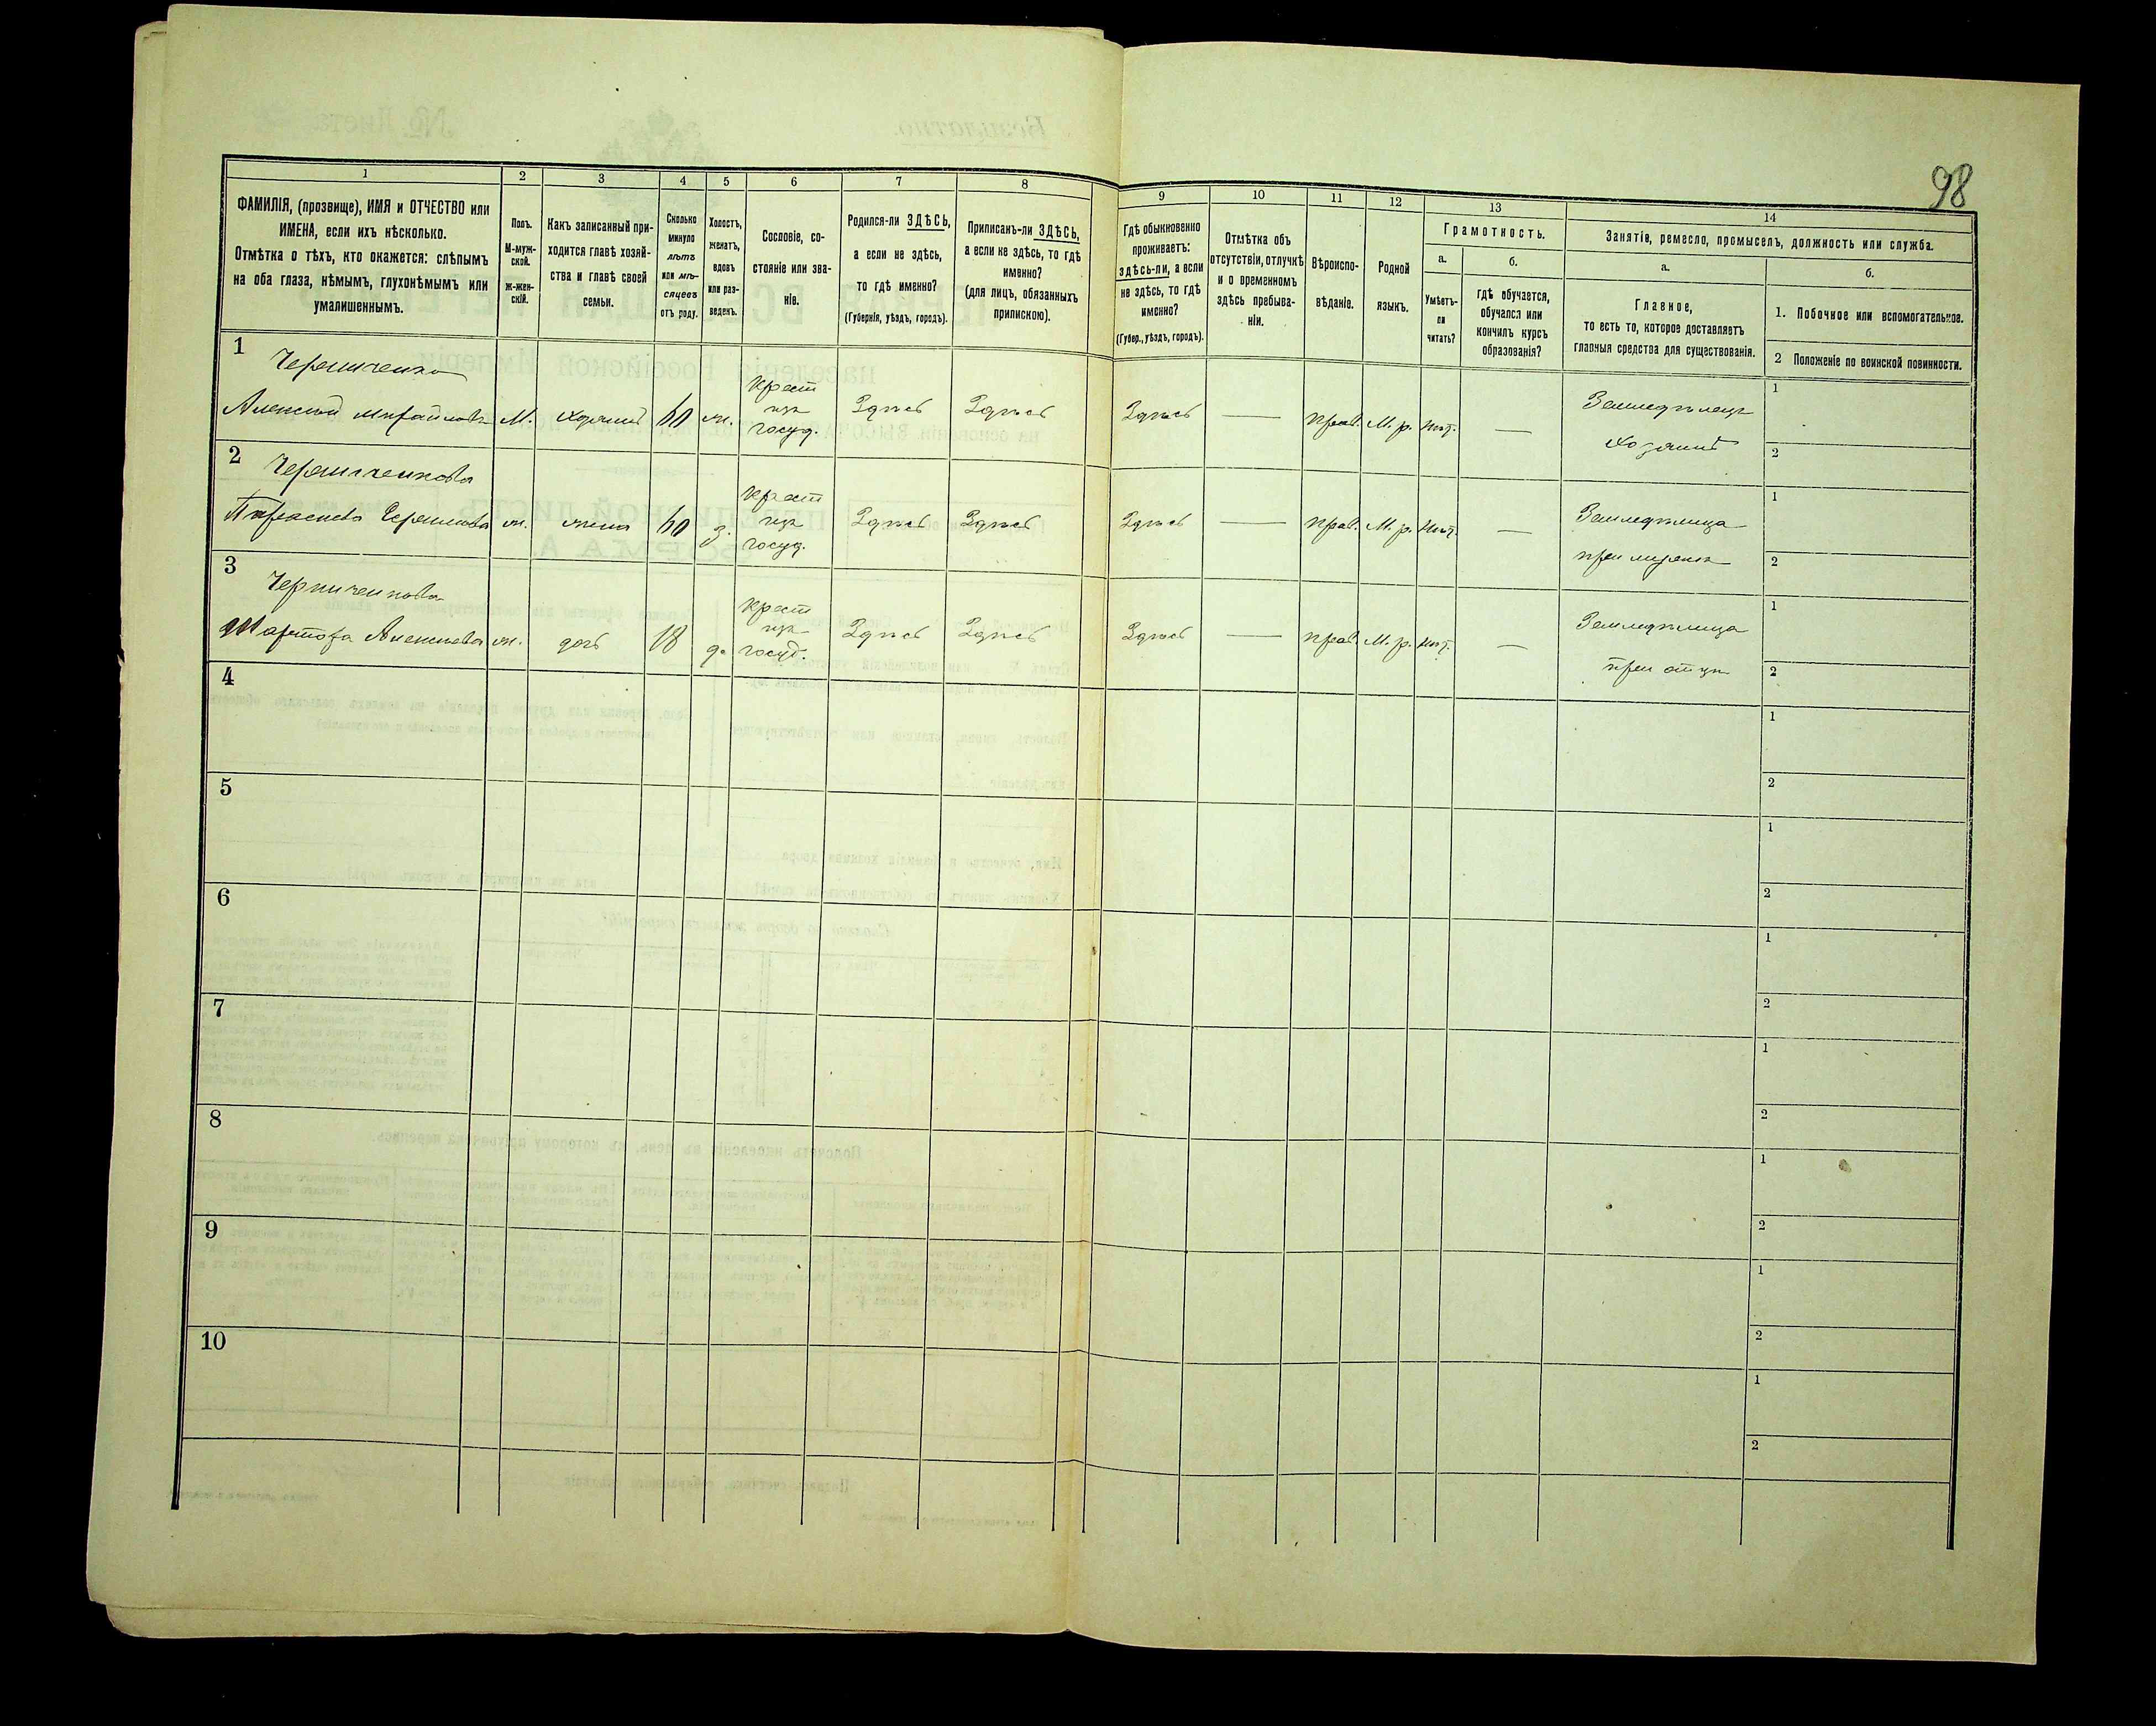 98
1
2
3
4
5
6
7
8
9
10
11
12
13
14
ФАМИЛІЯ, (прозвище), ИМЯ и ОТЧЕСТВО или
ИМЕНА, если ихъ нѣсколько.
Отмѣтка о тѣхъ, кто окажется: слѣпымъ
на оба глаза, нѣмымъ, глухонѣмымъ или
умалишеннымъ.
Полъ.
М-муж-
ской.
Ж-жен-
скій.
Какъ записанный при-
ходится главѣ хозяй-
ства и главѣ своей
семьи.
Сколько
минуло
лѣтъ
или мѣ-
сяцевъ
отъ роду.
Холостъ,
женатъ,
вдовъ
или раз-
веденъ.
Сословіе, со-
стояніе или зва-
ніе.
Родился-ли ЗДѢСЬ,
а если не здѣсь,
то гдѣ именно?
(Губернія, уѣздъ, городъ).
Приписанъ-ли ЗДѢСЬ,
а если не здѣсь, то гдѣ
именно?
(для лицъ, обязанныхъ
припискою).
Гдѣ обыкновенно
проживаетъ:
здѣсь-ли, а если
не здѣсь, то гдѣ
именно?
(Губер., уѣздъ, городъ).
Отмѣтка объ
отсутствіи, отлучкѣ
и о временномъ
здѣсь пребыва-
ніи.
Вѣроиспо-
вѣданіе.
Родной
языкъ.
Грамотность.
а.
б.
Умѣетъ-
ли
читать?
гдѣ обучается,
обучался или
кончилъ курсъ
образованія?
Занятіе, ремесло, промыселъ, должность или служба.
а.
б.
Главное,
то есть то, которое доставляетъ
главныя средства для существованія.
1. Побочное или вспомогательное.
2 Положеніе по воинской повинности.
1
Алексѣй Михайловъ М. хозяинъ 60 ж. Крест изъ госуд. Здѣсь Здѣсь Здѣсь — прав. М. р. нѣт. — Земледѣлецъ хозяинъ
1
2
2
жена 60 з. Крест изъ госуд. Здѣсь Здѣсь Здѣсь — прав. М. р. нѣт. — Земледѣлица при мужѣ
1
2
3
Алексѣева ж. дочь 18 д. Крест изъ госуд. Здѣсь Здѣсь Здѣсь — прав. М. р. нѣт. — Земледѣлица при отцѣ
1
2
4
1
2
5
1
2
6
1
2
7
1
2
8
1
2
9
1
2
10
1
2